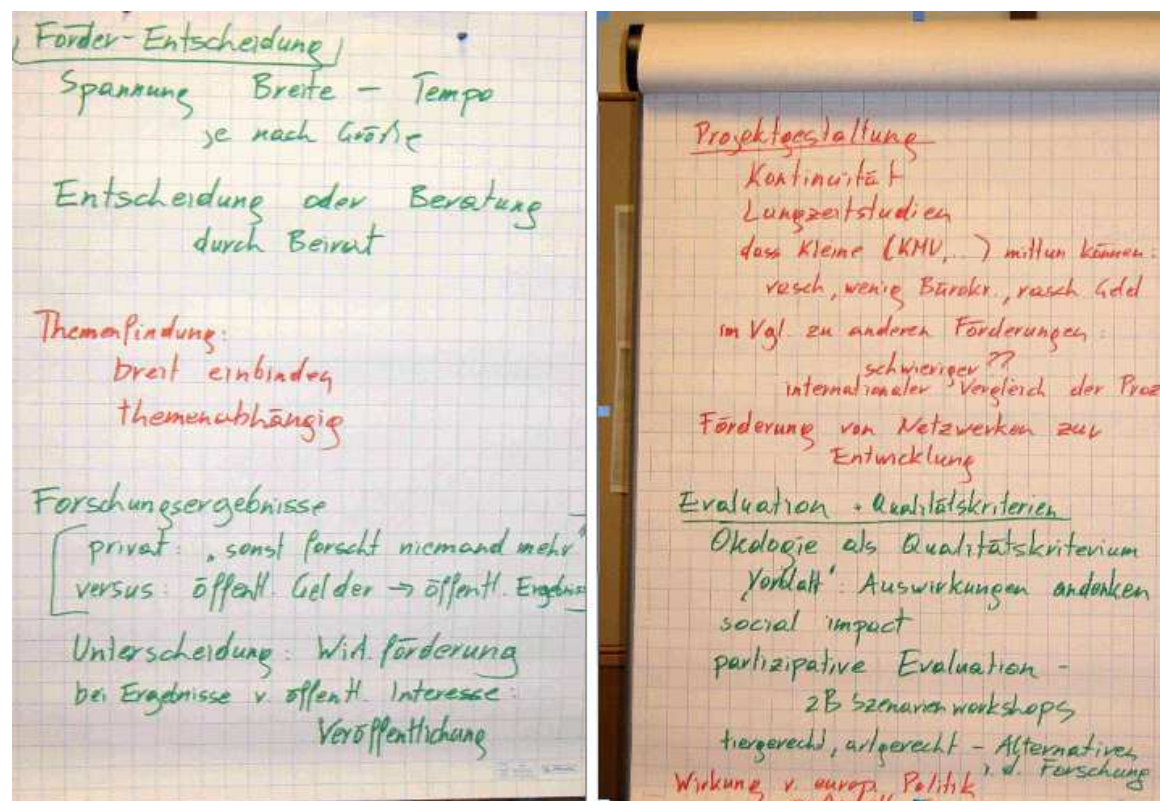 Förder-Entscheidung
Spannung Breite - Tempo
je nach Größe
Entscheidung oder Beratung
durch Beirat
Themenfindung:
breit einbinden
themenabhängig
Forschungsergebnisse
privat: "sonst forscht niemand mehr"
versus: öffentl. Gelder → öffentl. Ergebnisse
Unterscheidung: Wirt.förderung
bei Ergebnisse v. öffentl. Interesse:
Veröffentlichung
Projektgestaltung
Kontinuität
Langzeitstudien
dass Kleine (KMU,...) mittun können:
rasch, wenig Bürokr., rasch Geld
im Vgl. zu anderen Förderungen:
schwieriger??
internationaler Vergleich der Proz
Förderung von Netzwerken zur
Entwicklung
Evaluation + Qualitätskriterien
Ökologie als Qualitätskriterium
"Vorblatt": Auswirkungen andenken
social impact
partizipative Evaluation -
zB Szenarienworkshops
tiergerecht, artgerecht - Alternativen
i. d. Forschung
Wirkung v. europ. Politik